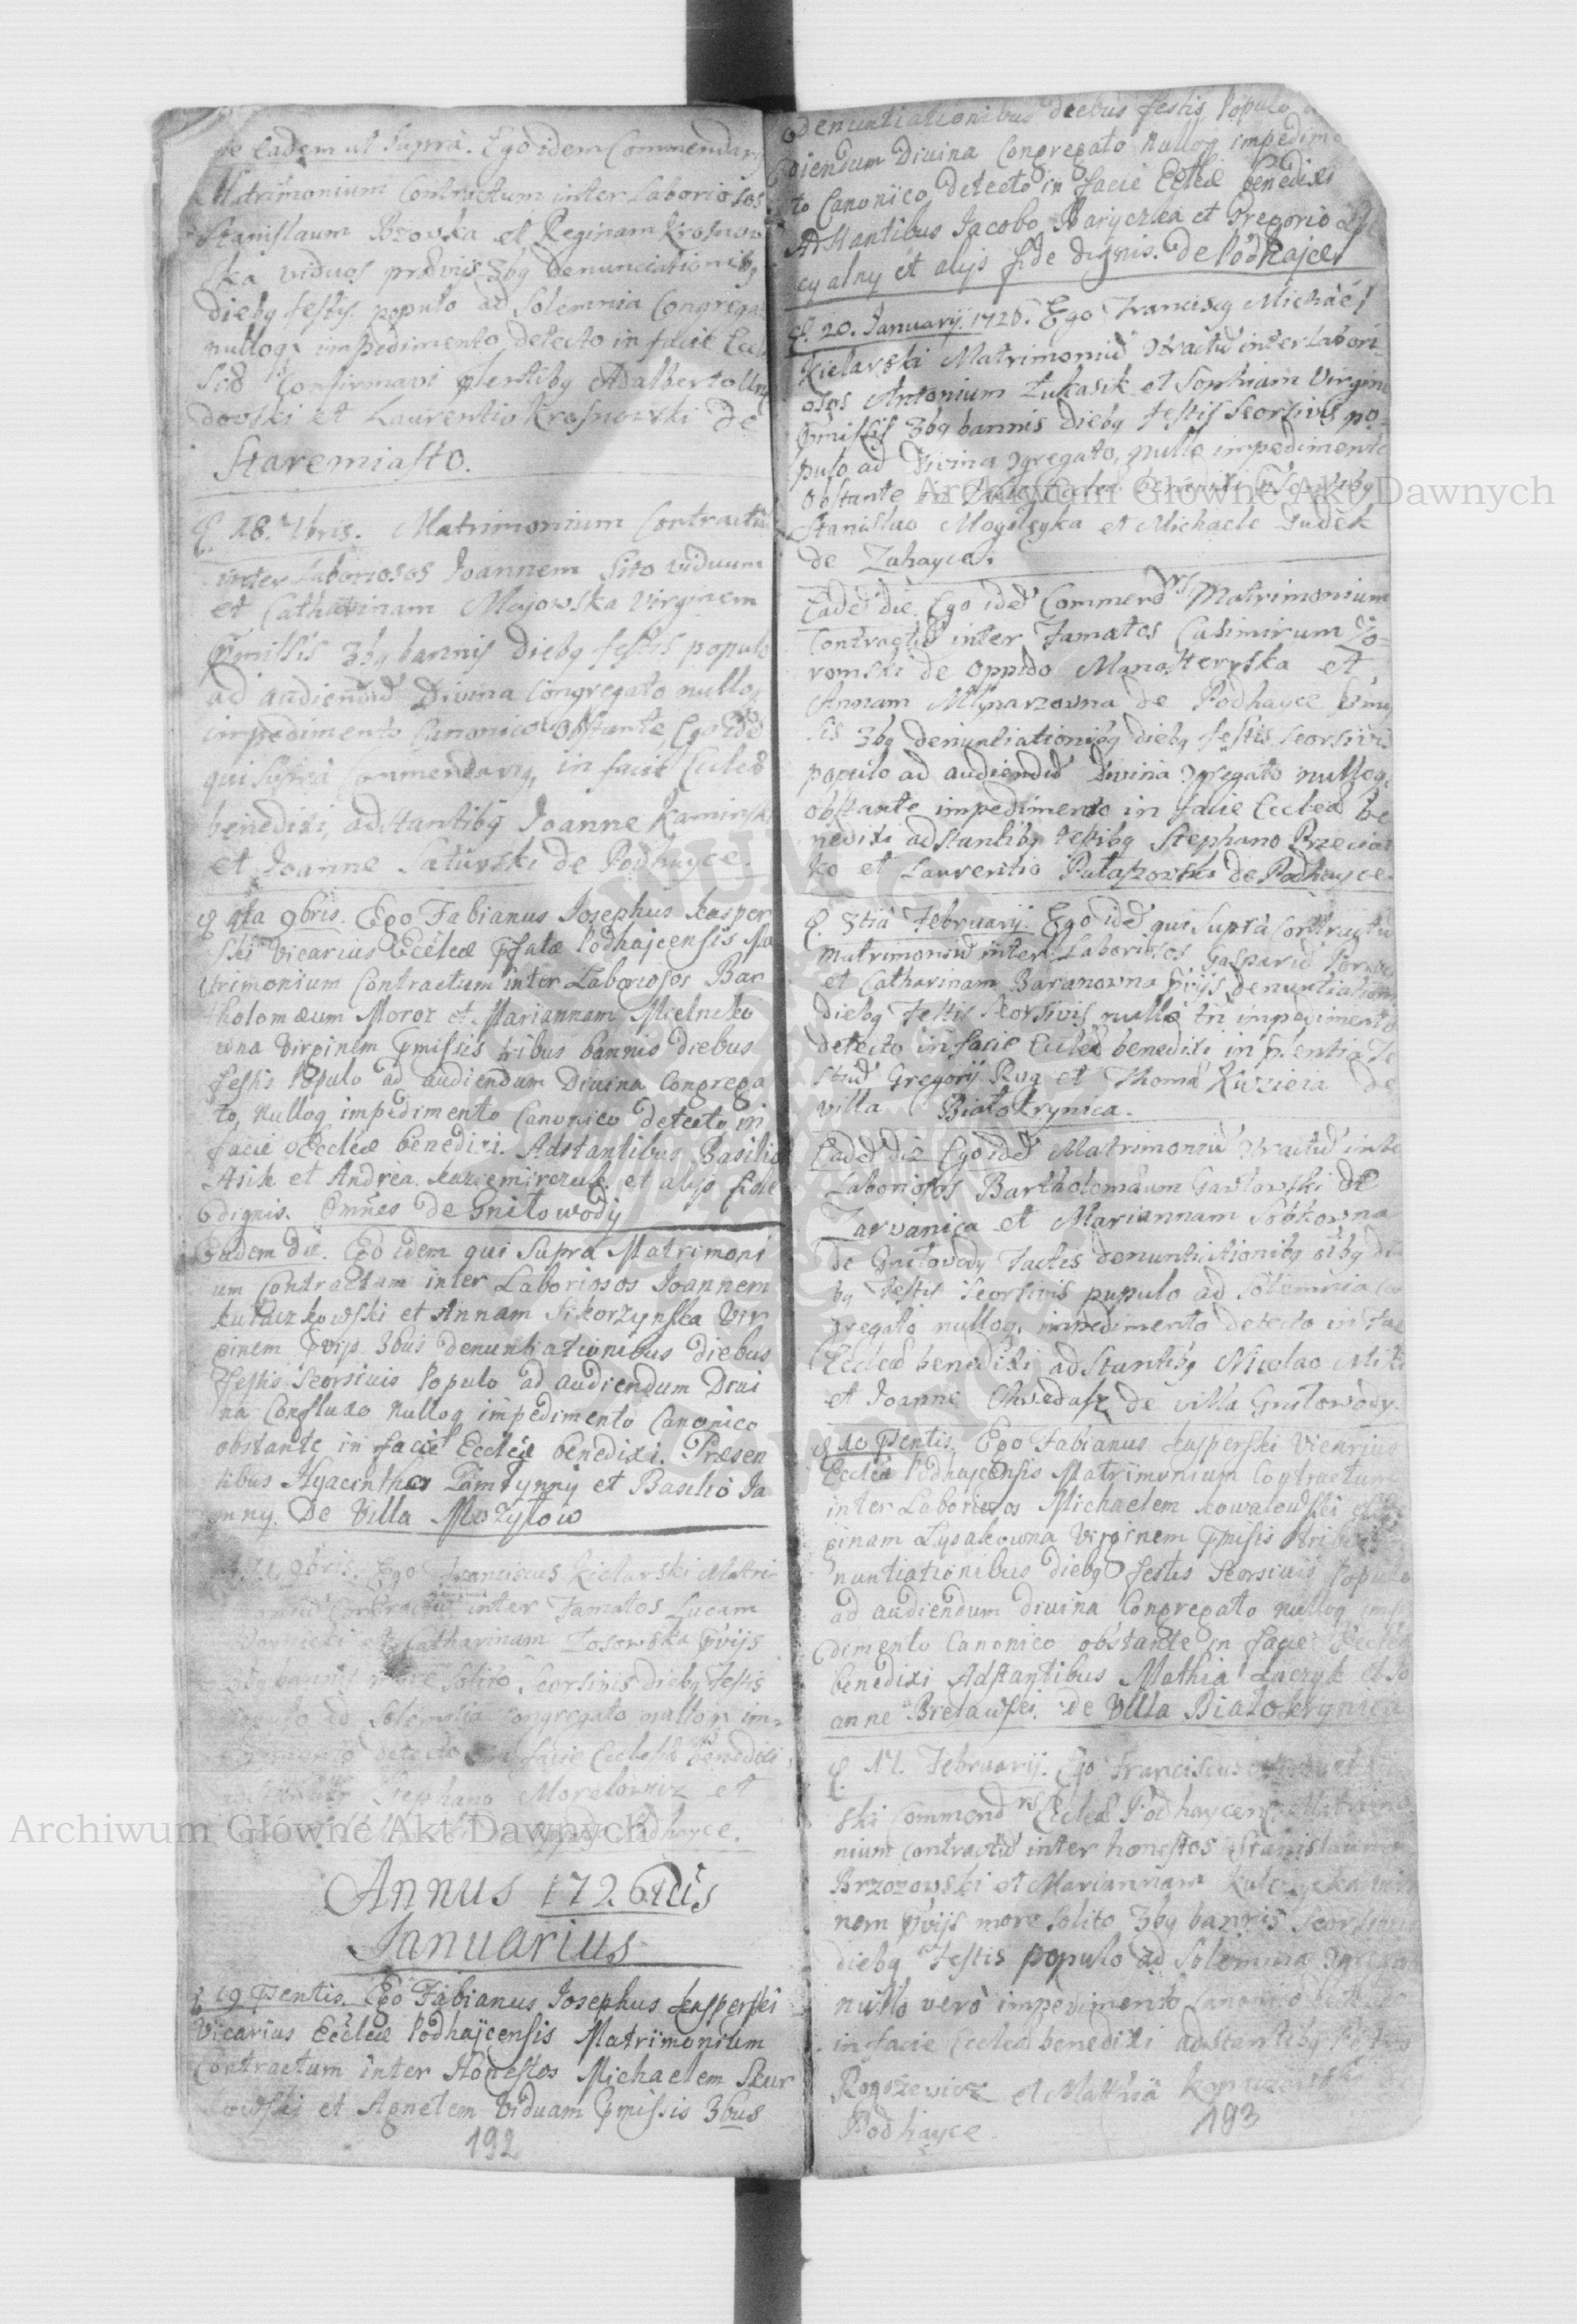 Eadem ut Supra. Ego idem Commendarg
Matrimonium Contractum inter Laboriosos
Stanislaum Brzovska et Reginam Krosnow
ska viduos præviis 3bg Denunciationibg
diebg festis populo ad Solemnia Congrega
nullog impedimento detecto in facie Eccle
Confirmavi Adalberto
dovski et Laurentio Krosnowski de
Staremiasto.
18. Matrimonium Contractu
inter Laboriosos Joannem Sito viduum
et Catharinam Majowska Virginem
præmissis 3bg bannis diebg festis populo
ad audiendū Divina Congregato nullog
impedimento Canonico obstante, Ego idē
qui Supra Commendarg, in facie Eccleæ
benedixi, adstantibg Joanne Kaminski
et Joanne Saturski de Podhayce.
4ta 9bris. Ego Fabianus Josephus Kasper
ski Vicarius Eccleæ Pfatæ Podhajcensis Ma
trimonium Contractum inter Laboriosos Bar
tholomæum Moroz et Mariannam Mielniko
wna Virginem Pmissis tribus bannis diebus
festis Populo ad audiendum Divina Congrega
to, Nullog impedimento Canonico detecto in
facie Eccleæ benedixi. Adstantibus Basilio
et Andrea Kazcemirczuk et alijs fide
dignis. Omnes De Gnitowody
Eadem die. Ego idem qui Supra Matrimoni
um Contractam inter Laboriosos Joannem
Kulaczkowski et Annam Sikorzynska Vir
ginem Pvijs 3bus Denuntiationibus diebus
festis Seorsivis Populo ad audiendum Divi
na Confluxo Nullog impedimento Canonico
obstante in facie Eccleæ benedixi. Præsen
tibus Hyacintho Zamtynny et Basilio Ja
mny. De Villa Mozytow
9bris. Ego Franciscus Kielarski Matri
Contractū inter Famatos Lucam
et Catharinam Zosowska Pvijs
3bg bannis more Solito Seorsivis diebg festis
populo ad Solemnia Congregato nullog im-
pedimento detecto in facie Eccleæ benedixi,
Stephano Morelowicz et
Podhayce.
Annus 1726tus
Januarius
19 Psentis. Ego Fabianus Josephus Kasperski
Vicarius Eccleæ Podhajcensis Matrimonium
Contractum inter Honestos Michaelem Skur
kowski et Agnetem Viduam Pmissis 3bus
192
Denuntiationibus diebus festis Populo
diendum Divina Congregato Nullog impedime
to Canonico detecto in facie Eccleæ benedixi
Adstantibus Jacobo Baryczka et Gregorio
cyalny et alijs fide dignis. De Podhajce
20. Januarij. 1726. Ego Franciscg Michael
Kielarski Matrimoniū Contractū inter Labori-
osos Antonium Łukasik et Sophiam Virgine
Pmissis 3bg bannis diebg festis Seorsivis po-
pulo ad Divina congregato, nullo impedimento
obstante in facie Eccleæ benedixi
Stanislao Mogilnyka et Michaele Dudek
de Zahayce.
Eadē die. Ego idē Commendrs Matrimonium
Contractū inter Famatos Casimirum Jo-
romski de oppido Manasterska et
Annam Mlynarzowna de Podhayce Pmis
sis 3bg denuntiationibg diebg festis Seorsivis
populo ad audiendū Divina congregato nullog
obstante impedimento in facie Eccleæ be
nedixi adstantibg testibg Stephano Brzecias
ko et Laurentio Putaszowski de Podhayce.
3tia Februarij. Ego idē qui Supra Contractū
Matrimoniū inter Laboriosos Gasparū
et Catharinam Baranowna Pvijs denuntiation
diebg festis Seorsivis nullo impedimento
detecto in facie Eccleæ benedixi in Psentia Te
stiū Gregorij Rug et Thoma Kuzieia de
villa Białokrynica.
Eadē die Ego idē Matrimoniū Contractū inter
Laboriosos Bartholomæum Gawłowski de
Zarvanica et Mariannam Sobkowna
de Gnitowody Factis denuntiationibg 3bg die
bg festis Seorsivis populo ad Solemnia con
gregato nullog impedimento detecto in facie
Eccleæ benedixi adstantibg Nicolao
et Joanne Chwedasz de villa Gnitowody.
10 Psentis. Ego Fabianus Kasperski Vicarius
Eccleæ Podhajcensis Matrimonium Contractum
inter Laboriosos Michaelem Kowalowski et Re
ginam Lysakowna Virginem Pmisis tribus De
nuntiationibus diebg festis Seorsivis Populo
ad audiendum divina Congregato Nullog impe
dimento Canonico obstante in facie Eccleæ
benedixi Adstantibus Mathia Łaczyk et Jo
anne Bretawski. De Villa Białokrynica
17. Februarij. Ego Franciscus
ski Commendrs Eccleæ Podhaycens Matrimo
nium contractū inter honestos Stanislaum
Brzozowski et Mariannam Kulczycka virgi
nem Pvijs more solito 3bg bannis Seorsivis
diebg festis populo ad Solemnia congrega
nullo vero impedimento Canonico detecto
in facie Eccleæ benedixi adstantibg Petro
Rogozewicz et Mathia
Podhayce.
193
Archiwum Główne Akt Dawnych
Archiwum Główne Akt Dawnych